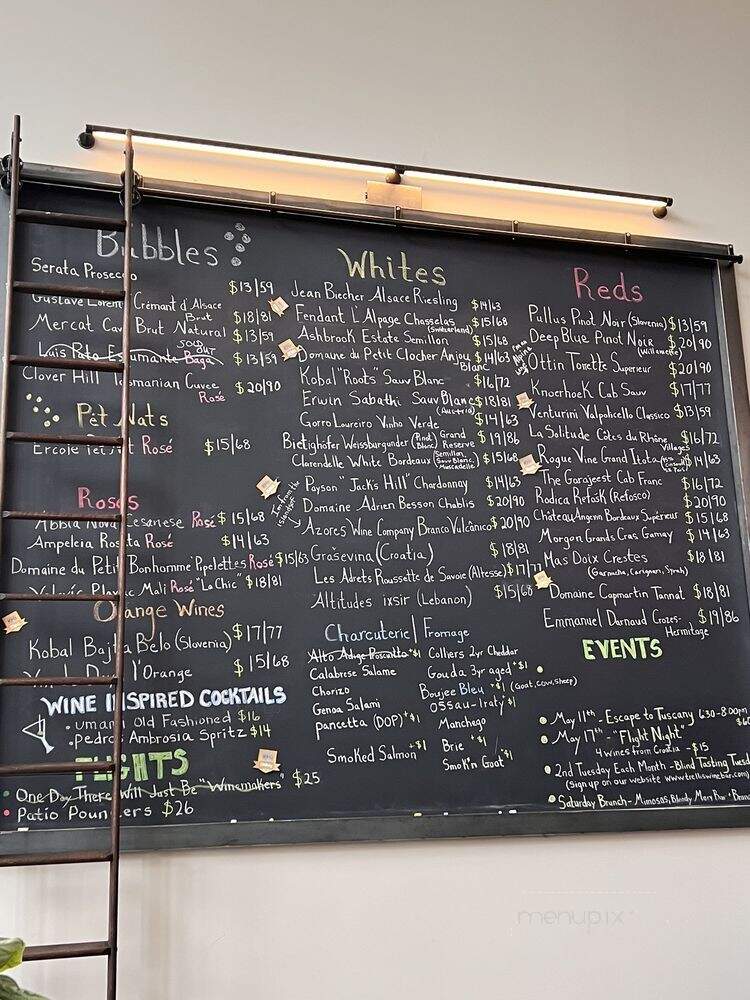 Bubbles
Serata Prosecco $13/59
Gustave Lorentz Crémant d'Alsace Brut $18/81
Mercat Cava Brut Natural $13/59
Luis Pato Espumante Baga SOLD OUT $13/59
Clover Hill Tasmanian Cuvee Rosé $20/90
Pét Nats
Ercole Pet Nat Rosé $15/68
Rosés
Abbia Nova Cesanese Rosé $15/68
Ampeleia Rosata Rosé $14/63
Domaine du Petit Bonhomme Pipelettes Rosé $15/63
Mali Rosé "La Chic" $18/81
Orange Wines
Kobal Bajta Belo (Slovenia) $17/77
l'Orange $15/68
WINE INSPIRED COCKTAILS
• Umami Old Fashioned $16
• Pedro's Ambrosia Spritz $14
FLIGHTS
• One Day There Will Just Be "Winemakers" $25
• Patio Pounders $26
Whites
Jean Biecher Alsace Riesling $14/63
Fendant L'Alpage Chasselas (Switzerland) $15/68
Ashbrook Estate Semillon $15/68
Domaine du Petit Clocher Anjou Blanc $14/63
Kobal "Roots" Sauv Blanc $16/72
Erwin Sabathi Sauv Blanc (Austria) $18/81
Gorro Loureiro Vinho Verde $14/63
Bietighöfer Weissburgunder (Pinot Blanc) Grand Reserve $19/86
Clarendelle White Bordeaux (Semillon, Sauv Blanc, Muscadelle) $15/68
Payson "Jack's Hill" Chardonnay $14/63
Domaine Adrien Besson Chablis $20/90
Azores Wine Company Branco Vulcânico $20/90
Graševina (Croatia) $18/81
Les Adrets Roussette de Savoie (Altesse) $17/77
Altitudes ixsir (Lebanon) $15/68
Charcuterie | Fromage
Alto Adige Proscuitto +$1
Calabrese Salame
Chorizo
Genoa Salami
Pancetta (DOP) +$1
Smoked Salmon +$1
Colliers 2yr Cheddar
Gouda 3yr aged +$1
Boujee Bleu +$1 (Goat, cow, sheep)
Ossau-Iraty $1
Manchego
Brie +$1
Smok'n Goat $1
Reds
Pullus Pinot Noir (Slovenia) $13/59
Deep Blue Pinot Noir (Willamette) $20/90
Ottin Torrette Superieur $20/90
Knoerhoek Cab Sauv $17/77
Venturini Valpolicello Classico $13/59
La Solitude Côtes du Rhône Villages $16/72
Rogue Vine Grand Itata $14/63
The Garajeest Cab Franc $16/72
Rodica Refosk (Refosco) $20/90
Château Argenn Bordeaux Supérieur $15/68
Morgon Grands Cras Gamay $14/63
Mas Doix Crestes $18/81
(Garnacha, Carignan, Syrah)
Domaine Capmartin Tannat $18/81
Emmanuel Darnaud Crozes-Hermitage $19/86
EVENTS
• May 11th - Escape to Tuscany 6:30-8:00pm
• May 17th - "Flight Night"
4 wines from Croatia - $15
• 2nd Tuesday Each Month - Blind Tasting Tuesd
(Sign up on our website www.trelliswinebar.com)
• Saturday Brunch - Mimosas, Bloody Mary Bar
menupix